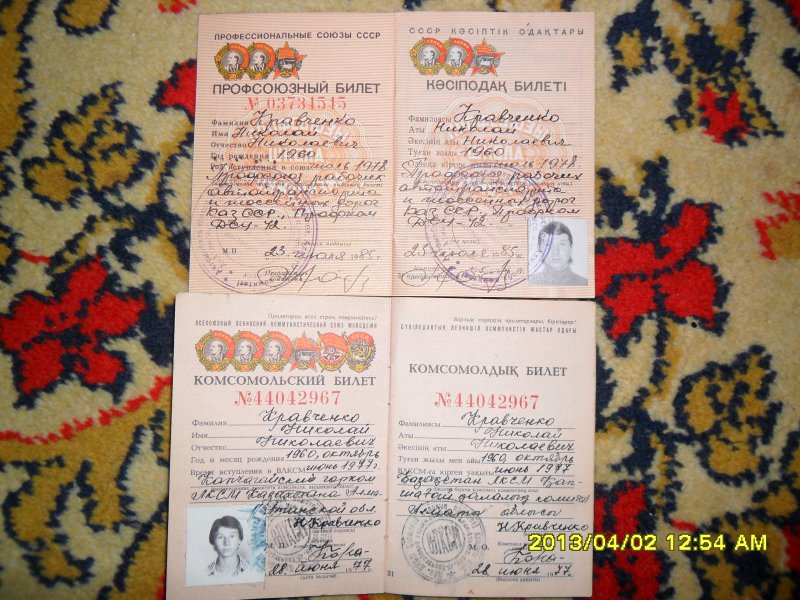 ПРОФЕССИОНАЛЬНЫЕ СОЮЗЫ СССР
ПРОФСОЮЗНЫЙ БИЛЕТ
№ 03734545
Фамилия Кравченко
Имя Николай
Отчество Николаевич
Год рождения 1960
Год вступления в союз июль 1978
Профсоюз рабочих
автотранспорта
и шоссейных дорог
Каз ССР, Профком
ДСУ-12.
М П 23 июля 1985 г.
СССР КӘСІПТІК ОДАҚТАРЫ
КӘСІПОДАҚ БИЛЕТІ
Фамилиясы Кравченко
Аты Николай
Әкесінің аты Николаевич
Туған жылы 1960
Одаққа кірген июль 1978
Профсоюз рабочих
автотранспорта
и шоссейных дорог
Каз ССР, Профком
ДСУ-12.
23 июля 1985 г.
Пролетарии всех стран, соединяйтесь!
ВСЕСОЮЗНЫЙ ЛЕНИНСКИЙ КОММУНИСТИЧЕСКИЙ СОЮЗ МОЛОДЕЖИ
КОМСОМОЛЬСКИЙ БИЛЕТ
№44042967
Фамилия Кравченко
Имя Николай
Отчество Николаевич
Год и месяц рождения 1960, октябрь
Время вступления в ВЛКСМ июнь 1977 г.
Капчагайский горком
ЛКСМ Казахстана Алма-
Атинской обл.
Н Кравченко
28 июня 1977 г.
Барлық елдердің пролетарлары, бірігіңдер!
БҮКІЛОДАҚТЫҚ ЛЕНИНДІК КОММУНИСТІК ЖАСТАР ОДАҒЫ
КОМСОМОЛДЫҚ БИЛЕТ
№44042967
Фамилиясы Кравченко
Аты Николай
Әкесінің аты Николаевич
Туған жылы мен айы 1960 октябрь
ВЛКСМ-ға кірген уақыты июнь 1977
Казақстан ЛКСМ Қап-
шағай қалалық комитеті
Алматы облысы
Н Кравченко
М. О.
28 июня 1977 г.
31
2013/04/02 12:54 AM